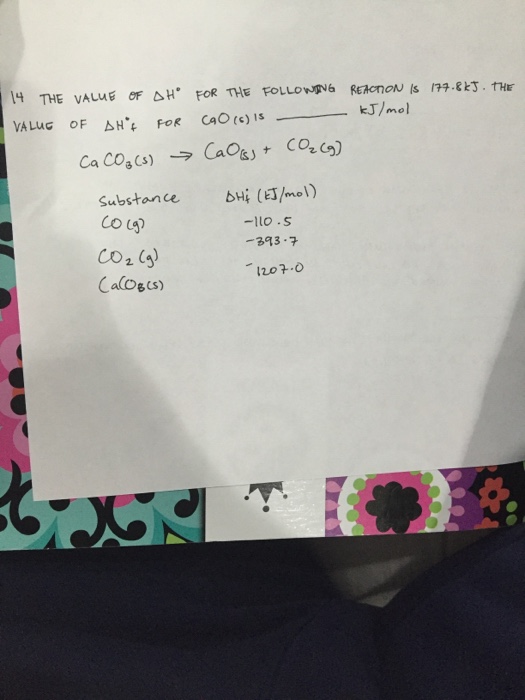 14 THE VALUE OF ΔH° FOR THE FOLLOWING REACTION IS 177.8kJ. THE
VALUE OF ΔH°f FOR CaO(s) IS ________ kJ/mol
CaCO3(s) → CaO(s) + CO2(g)
Substance ΔHf (kJ/mol)
CO(g) -110.5
CO2(g) -393.7
CaCO3(s) -1207.0